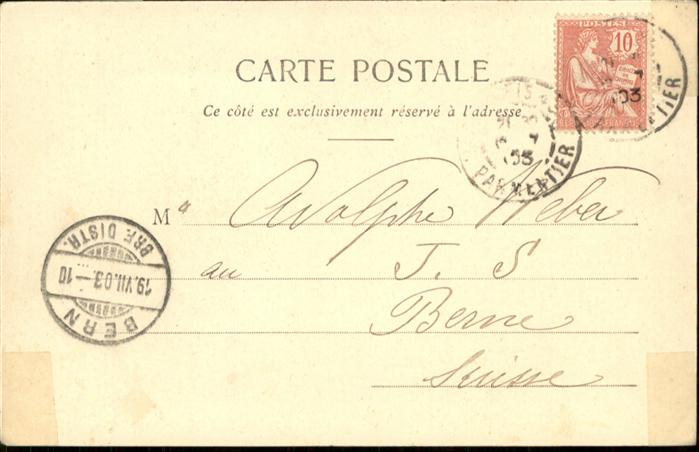 POSTES
10
CARTE POSTALE
Ce côté est exclusivement réservé à l'adresse
03
03
PARMENTIER
Mr Adolphe Weber
au J. S
Berne
Suisse
BRF. DISTR.
19.VII.03.-10
BERN